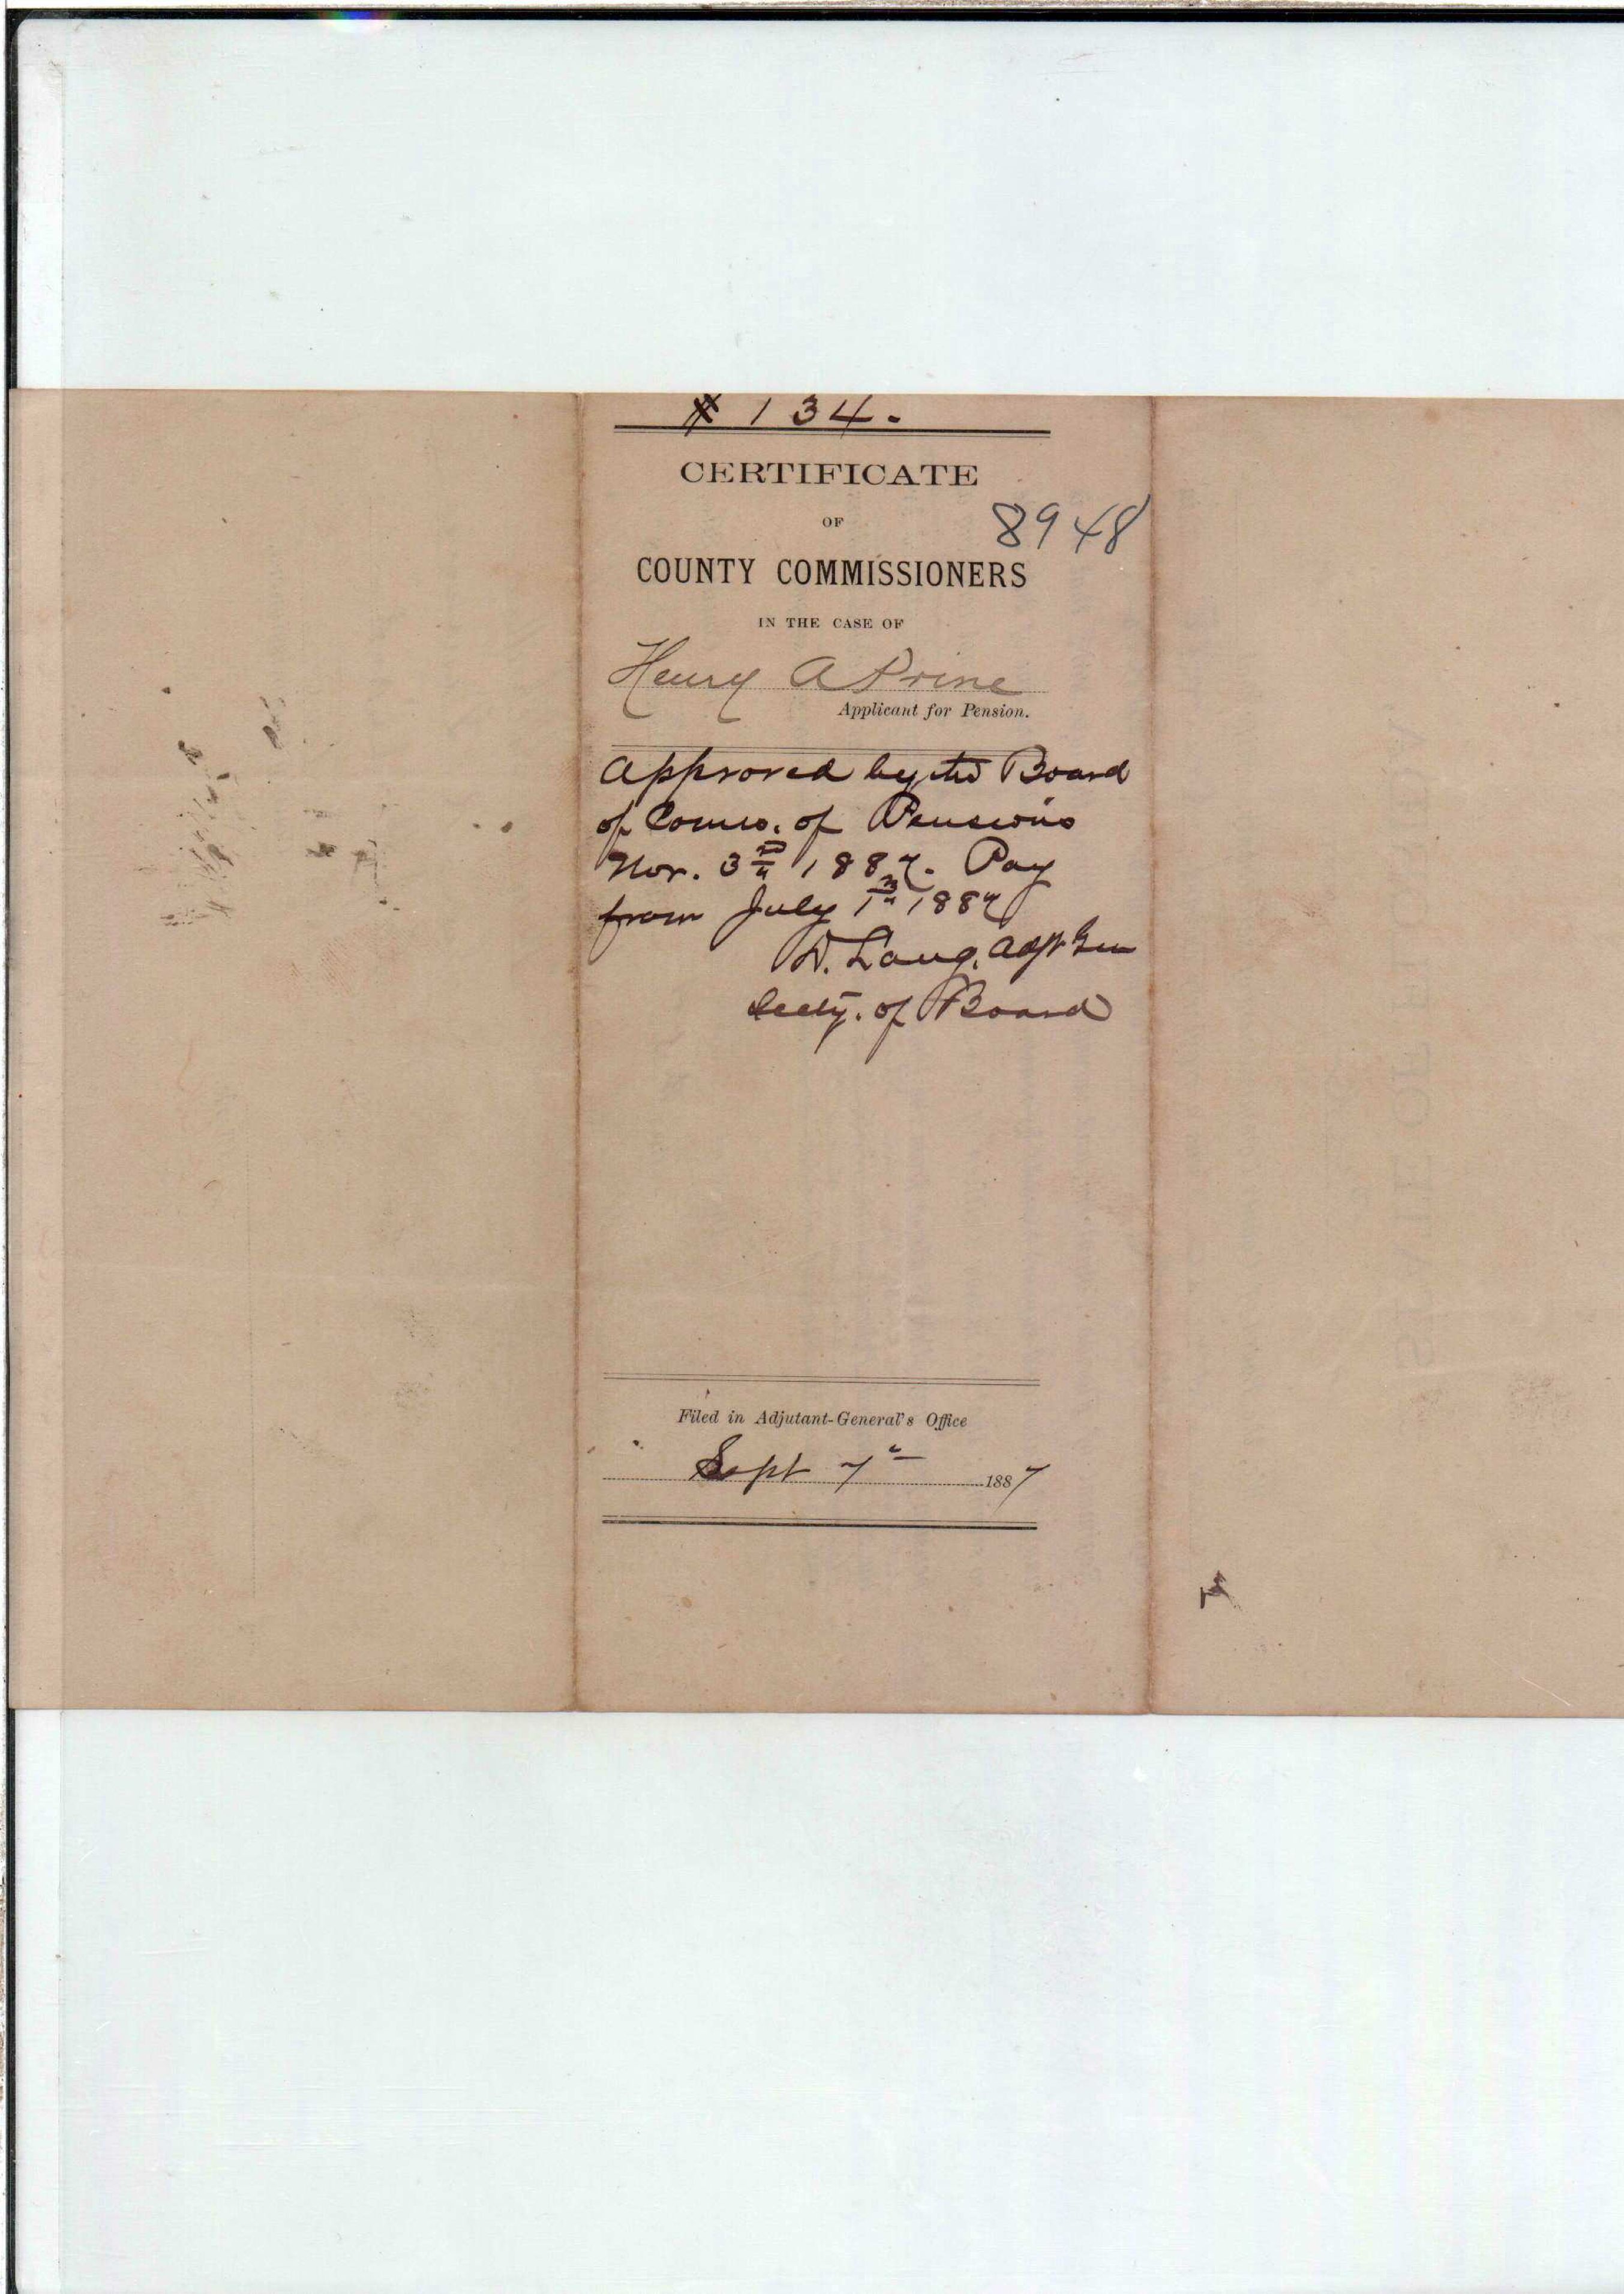 # 134.
CERTIFICATE
OF
8948
COUNTY COMMISSIONERS
IN THE CASE OF
Henry A Prine
Applicant for Pension.
Approved by the Board
of Comrs. of Pensions
Nov. 3rd 1887. Pay
from July 1st 1887
D. Lang, Adjt Gen
Secty. of Board
Filed in Adjutant-General's Office
Sept 7th 1887